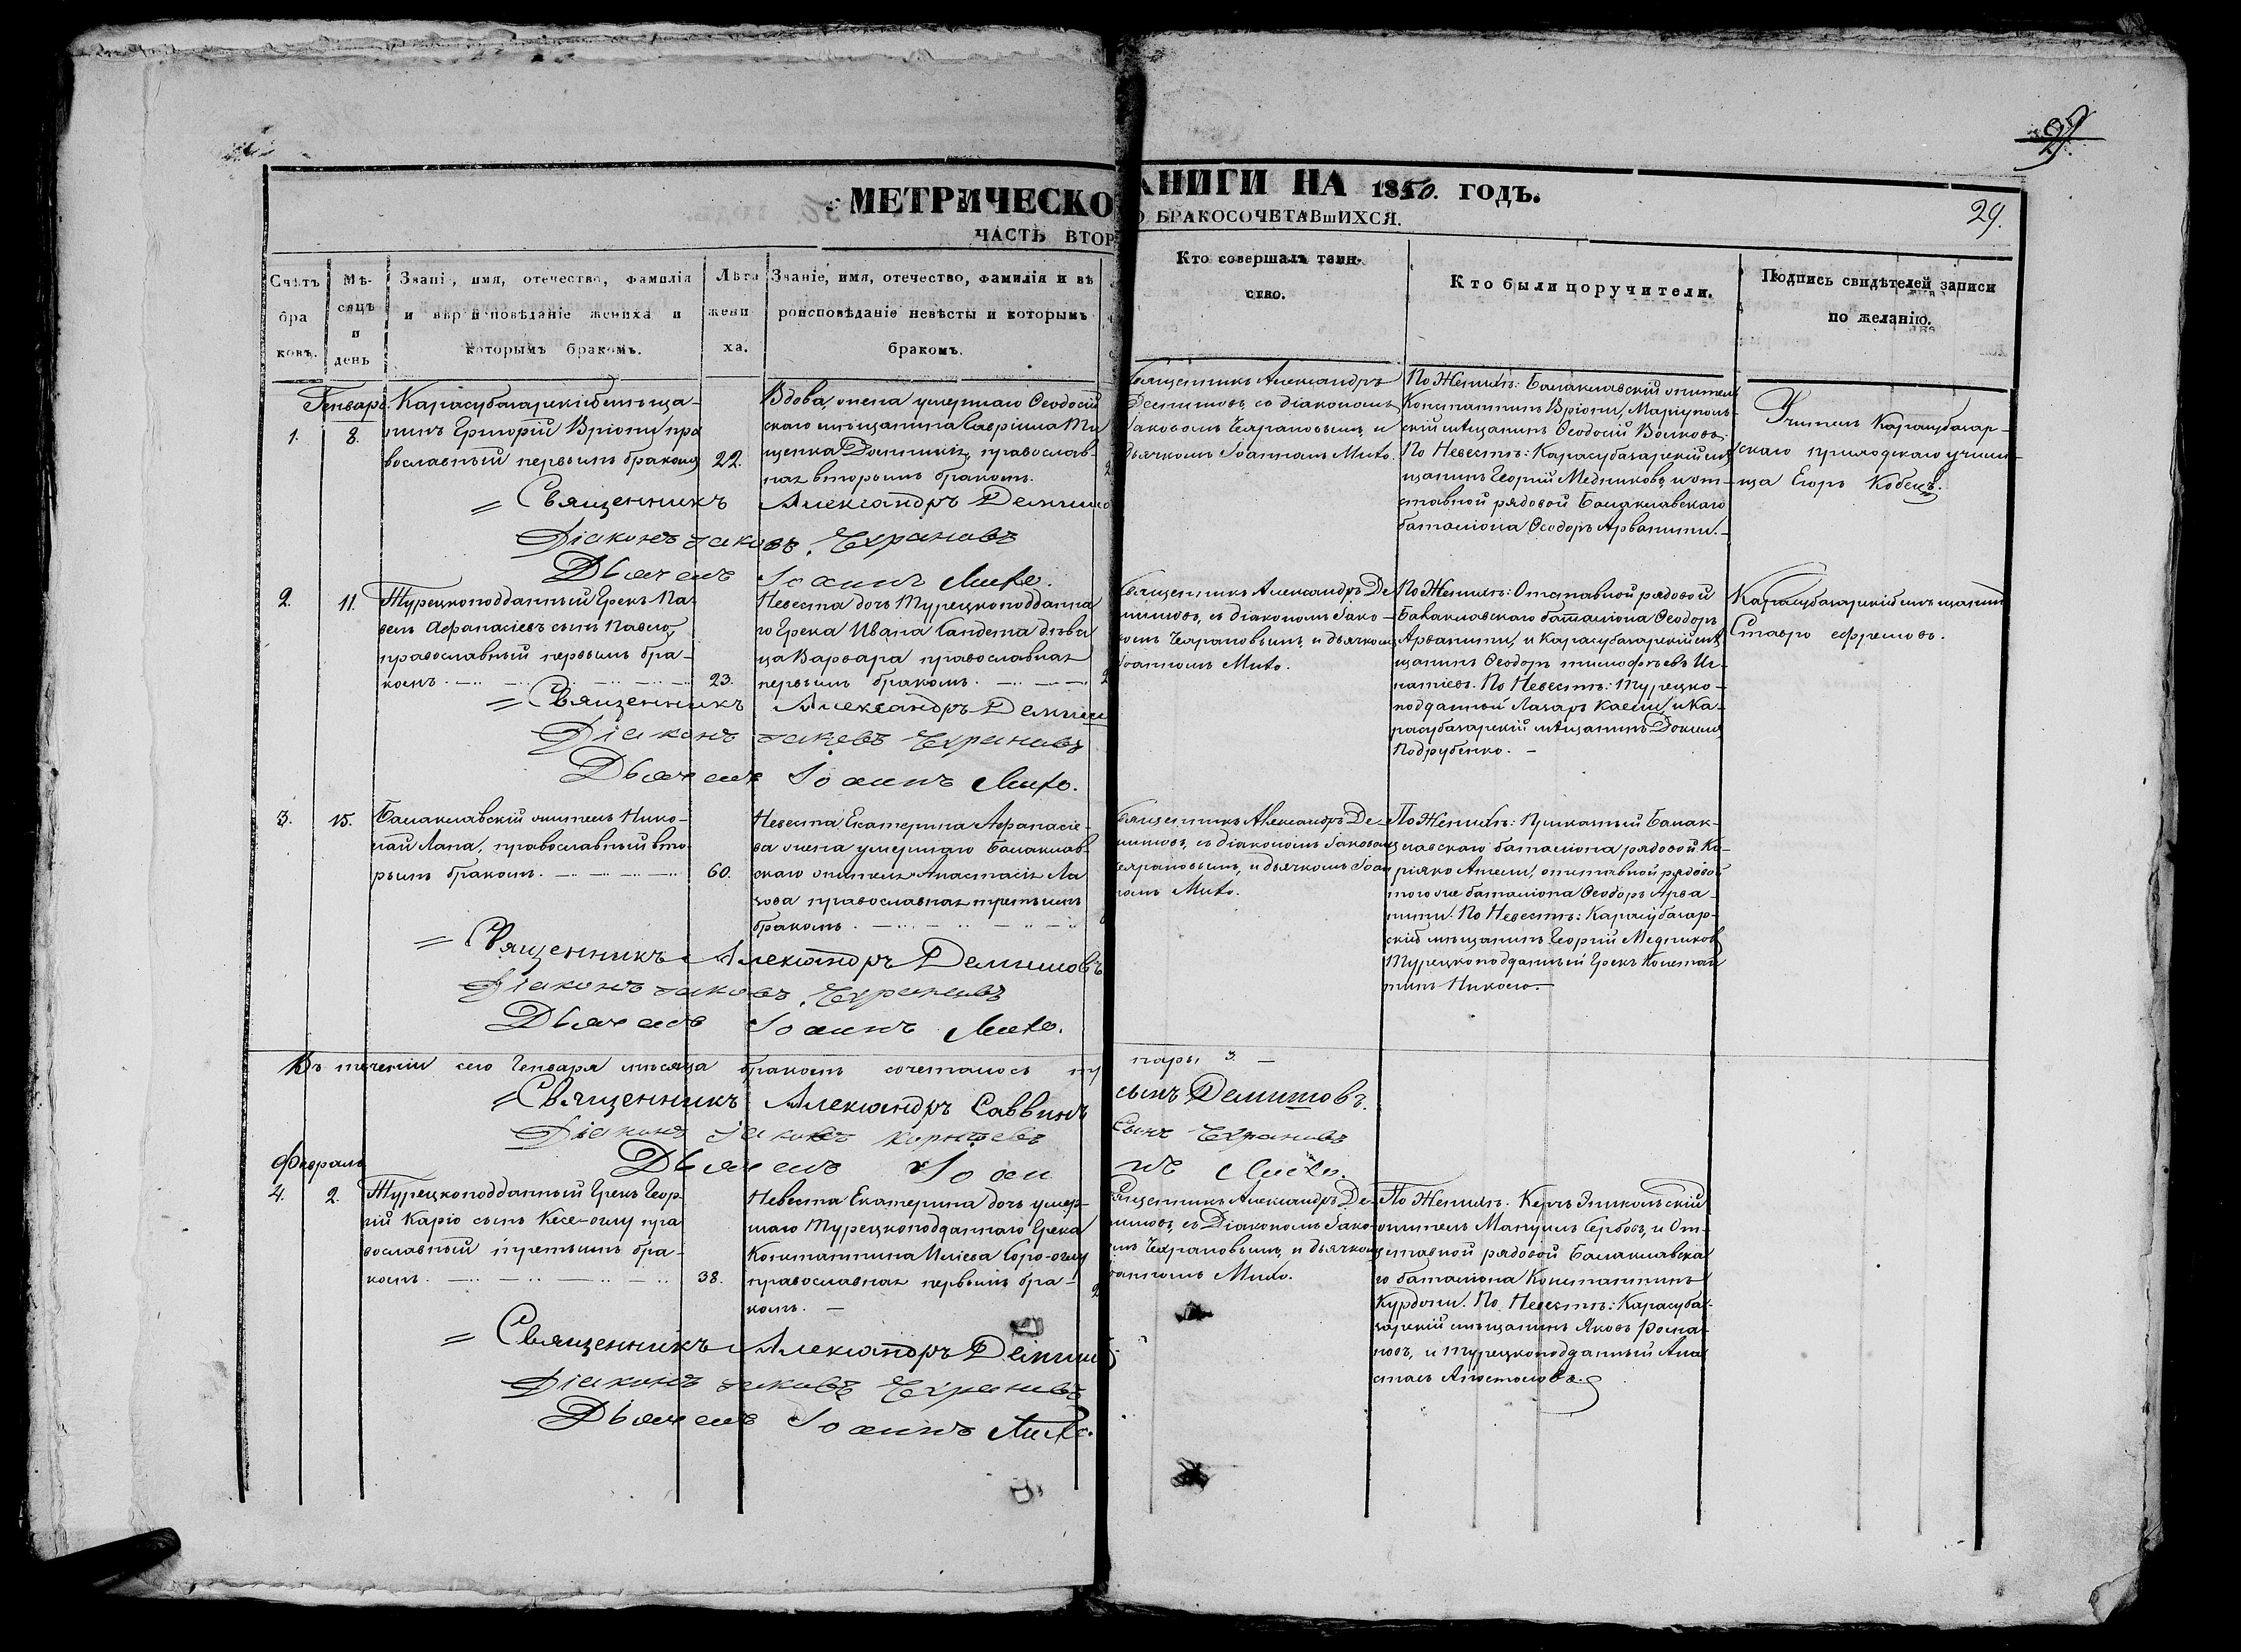 29.
МЕТРИЧЕСКО КНИГИ НА 1850. ГОДЪ.
29.
ЧАСТЬ ВТОР О БРАКОСОЧЕТАВшИХСЯ.
Счетъ бра ковъ.
Мѣ- сяцъ и день
Званіе, имя, отечество, фамилія
и вѣроисповѣданіе жениха и
которымъ бракомъ.
Лѣта жени ха.
Званіе, имя, отечество, фамилія и вѣ
роисповѣданіе невѣсты и которымъ
бракомъ.
Кто совершалъ таин-
ство.
Кто были поручители.
Подпись свидѣтелей записи
по желанію.
Генварь.
1. 8.
Карасубазарскій мѣща-
нинъ Григорій Вріони пра
вославный первымъ бракомъ
22.
Вдова, жена умершаго Ѳеодосій
скаго мѣщанина Гавріила Ти
щенка Домникія, православ-
ная вторымъ бракомъ.
Священникъ Александръ
Десимовъ, съ діакономъ
Іаковомъ и
дьячкомъ Іоанномъ Мито.
По Женихѣ: Балаклавскій житель
Константинъ Вріони, Маріуполь-
скій мѣщанинъ Ѳеодосій Волковъ.
По Невестѣ: Карасубазарскій мѣ
щанинъ Георгій Медниковъ, и от-
ставной рядовой Балаклавскаго
баталіона Ѳеодоръ Арванити.
Учитель Карасубазар-
скаго приходскаго учили-
ща Егоръ
Священникъ Александръ
Діаконъ Іаковъ
Дьячекъ Іоаннъ Мито.
2. 11.
Турецкоподданный Грекъ Па-
велъ Афанасіевъ сынъ Павло,
православный первымъ бра-
комъ. 23.
Невеста дочь Турецкоподданна
го Грека Ивана девы
ца Варвара православная
первымъ бракомъ.
Священникъ Александръ Де
съ діакономъ Іако-
вомъ и дьячкомъ
Іоанномъ Мито.
По Женихѣ: Отставной рядовой
Балаклавскаго баталіона Ѳеодоръ
Арванити, и Карасубазарскій мѣ
щанинъ Ѳеодоръ тимофѣевъ Иг-
натіевъ. По Невестѣ: Турецко-
подданный Лазарь и Ка-
расубазарскій мѣщанинъ
Подрубенко.
Карасубазарскій мѣщанинъ
Ставро ефремовъ.
Священникъ Александръ
Діаконъ Іаковъ
Дьячекъ Іоаннъ Мито.
3. 15.
Балаклавскій житель Нико-
лай Лапа, православный вто-
рымъ бракомъ. 60.
Невеста Екатерина Афанасіе-
ва жена умершаго Балаклав-
скаго жителя Анастасія Ла
зова православная третьимъ
бракомъ.
Священникъ Александръ Де-
съ діакономъ Іаковомъ
и дьячкомъ Іоан
номъ Мито.
По Женихѣ: Балак-
лавскаго баталіона рядовой Ки-
ріяко отставной рядовой
того же баталіона Ѳеодоръ Арва-
нити. По Невестѣ: Карасубазар-
скій мѣщанинъ Георгій Медниковъ
Турецкоподданный Грекъ Констан
тинъ Николо.
Священникъ Александръ
Діаконъ Іаковъ
Дьячекъ Іоаннъ Мито.
Въ теченіи сего Генваря мѣсяца бракомъ сочеталось пары 3.
Священникъ Александръ Саввинъ сынъ
Діаконъ Іаковъ сынъ
Дьячекъ Іоаннъ Мито.
Февраль
4. 2.
Турецкоподданный Грекъ Геор-
гій Каріо сынъ Кесе-оглу пра
вославный третьимъ бра-
комъ. 38.
Невеста Екатерина дочь умер-
шаго Турецкоподданнаго Грека
Константина Иліева
православная первымъ бра-
комъ.
Священникъ Александръ Де-
съ Діакономъ Іако-
и дьячкомъ
Іоанномъ Мито.
По Женихѣ. Керчь Эникольскій
житель Мануилъ Сербовъ, и От-
ставной рядовой Балаклавска
го баталіона Константинъ
Курдони. По Невестѣ: Карасуба-
зарскій мѣщанинъ Яковъ
и турецкоподданный Ана
стасъ Апостоловъ.
Священникъ Александръ
Діаконъ Іаковъ
Дьячекъ Іоаннъ Мито.